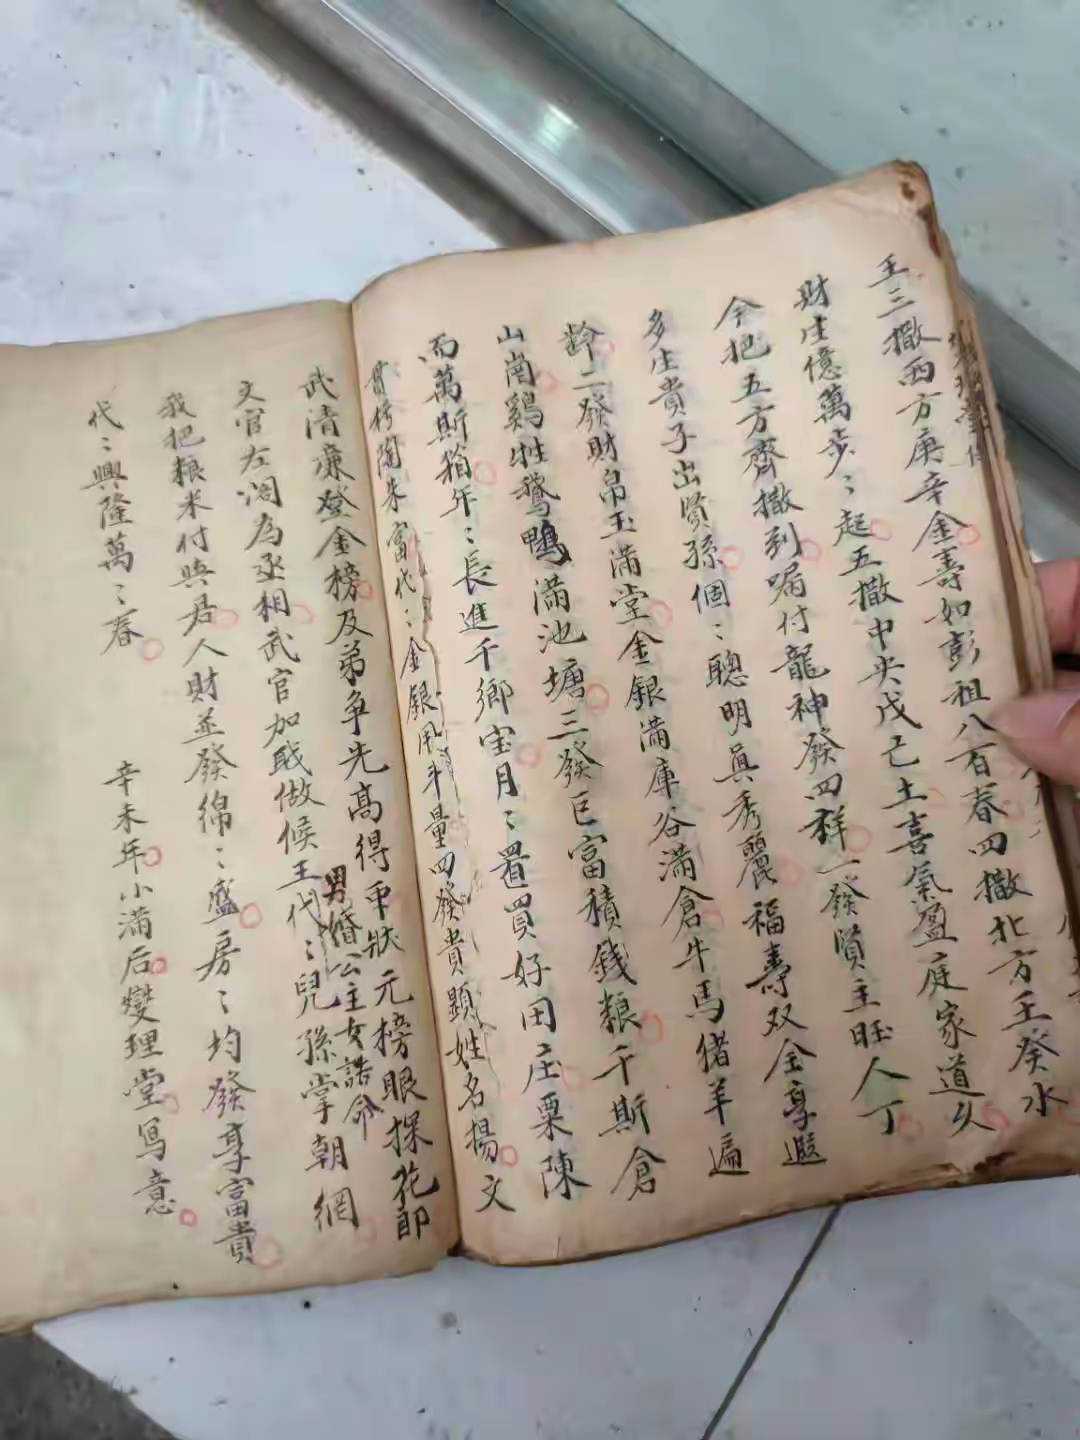 王三撒西方庚辛金壽如彭祖八百春四撒北方王癸水
財生億萬步〻起五撒中央戊己土喜氣盈庭家道久
今把五方齊撒到囑付龍神發四祥一發賢主旺人丁
多生貴子出賢孫個〻聰明眞秀麗福壽双全享遐
齡二發財帛玉滿堂金銀滿庫谷滿倉牛馬猪羊遍
山崗鷄牲鵞鴨滿池塘三發巨富積錢粮千斯倉
而萬斯箱年〻長進千鄉宝月〻置買好田庄粟陳
貫朽陶朱富代〻金銀用斗量四發貴顯姓名揚文
武清亷登金榜及弟争先高得中狀元榜眼探花郎
文官左閣為丞相武官加戝做候王代〻兒孫掌朝綱
男婚公主女誥命
我把粮米付與君人財並發綿〻盛房〻均發享富貴
代〻興隆萬〻春
辛未年小滿后燮理堂写意